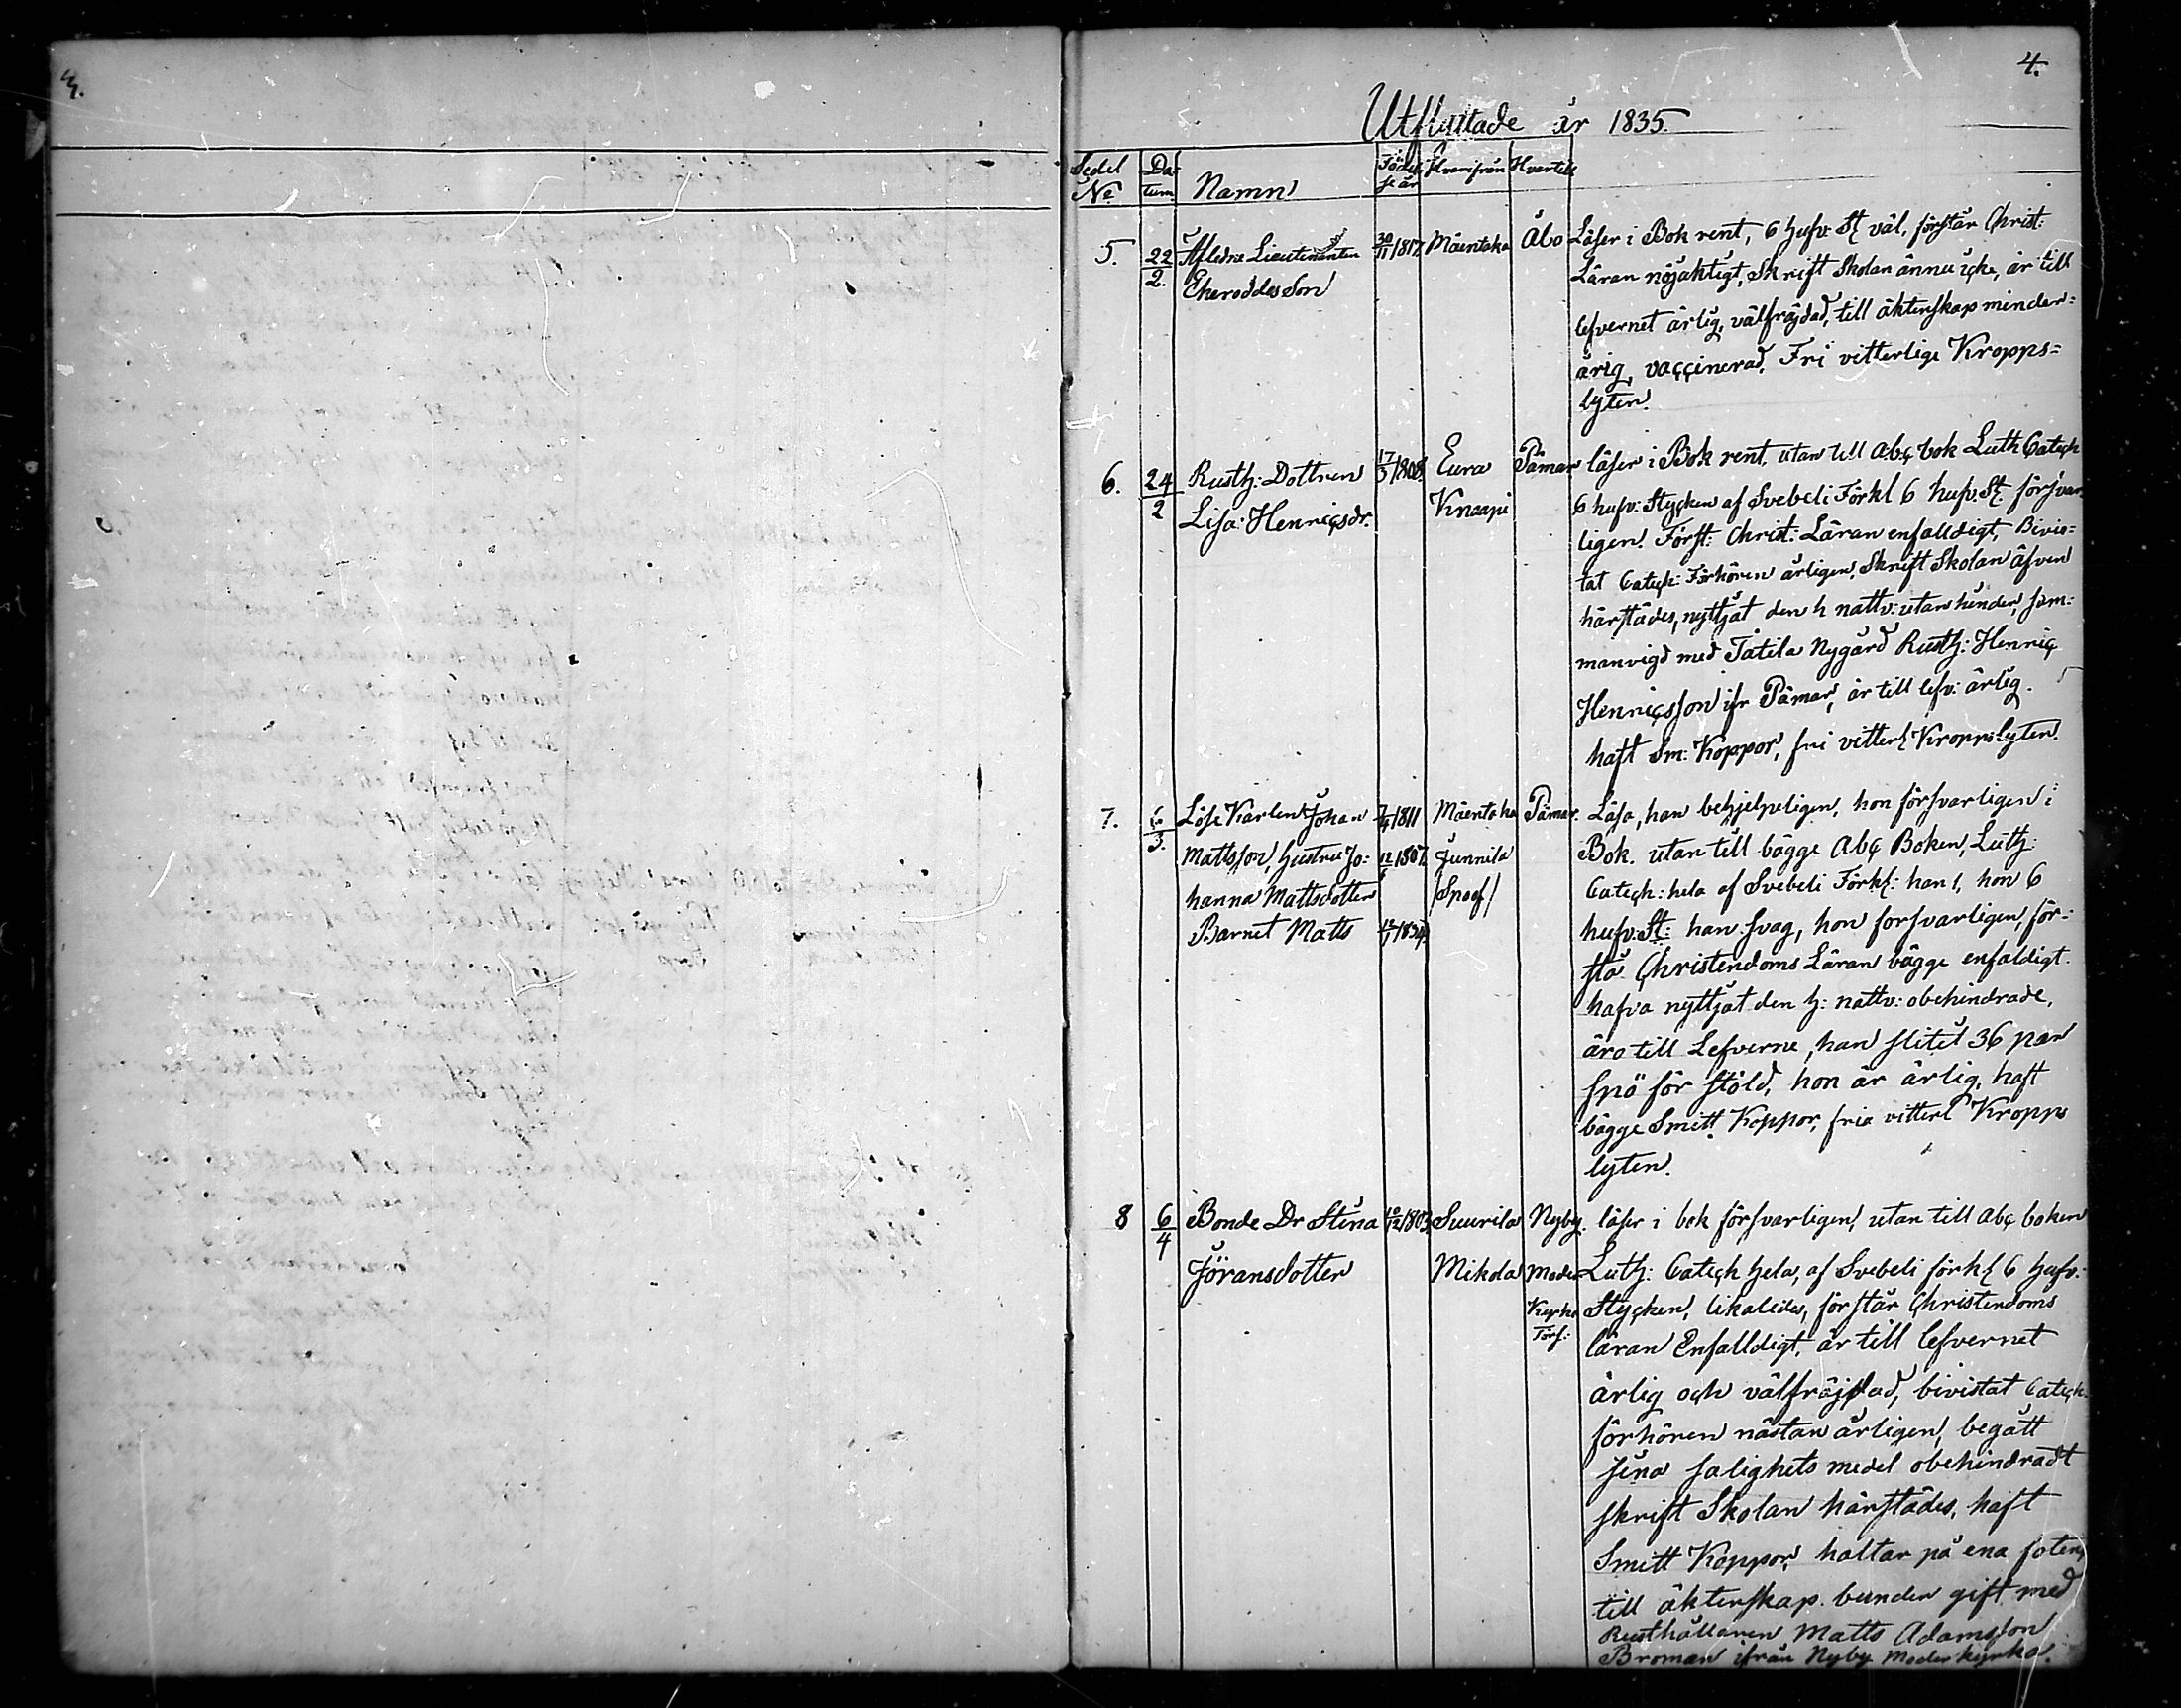 3.
4.
Utflyttade år 1835.
Sedel No Datum Namn Födelse år Hvarifrån Hvartill
5. 22/2. Afledne Lieutenanten 30/11 1817 Mäentaka Åbo Läser i Bok rent, 6 hufv: St väl, förstår Christ:
Eheroddes Son Läran nöjaktigt, Skrift Skolan ännu icke, är till
lefvernet ärlig, välfräjdad, till äktenskap minder=
årig, vaccinerad, Fri vitterlige Kropps=
lyten.
6. 24/2 Rusth: Dottren 17/3 1808. Eura Pämar läser i Bok rent, utan till abc bok Luth Catech
Lisa Henricsdr. Knaapi 6 hufv: Stycken af Svebeli Förkl 6 hufv. St. försvar
ligen. Först: Christ: Läran enfalldigt, Bivis=
tat Catech: Förhören årligen, Skrift Skolan äfven
härstädes, nyttjat den h nattv: utan hinder, sam=
manvigd med Tatila Nygård Rusth: Henric
Henricsson ifr Pämar, är till lefv: ärlig.
haft Sm: Koppor, fri vitterl Kroppslyten.
7. 6/3. Löse Karlen Johan 7/4 1811 Mäentaka Pämar. Läsa, han behjelpeligen, hon försvarligen i
Mattsson, hustru Jo= 1807 Junnila Bok. utan till bägge Abc Boken, Luth:
hanna Mattsdotter /Spoof/ Catech: hela af Svebeli Förkl: han 1, hon 6
Barnet Matts 1834 hufv: St: han svag, hon försvarligen, för=
stå Christendoms Läran bägge enfaldigt.
hafva nyttjat den h: nattv: obehindrade,
äro till Lefverne, han slitit 36 par
spö för stöld, hon är ärlig, haft
bägge Smitt Koppor, fria vitterl Kropps
lyten.
8 6/4 Bonde Dr Stina 10/12 1803 Suurila Nyby. läser i bok försvarligen, utan till Abc boken
Jöransdotter Mikola Moder Luth: Catech hela, af Svebeli förkl 6 hufv:
Kyrko Stycken, likaledes, förstår Christendoms
Förs: läran Enfalldigt, är till lefvernet
ärlig och välfräjdad, bivistat Catech.
förhören nästan årligen, begått
sina salighets medel obehindradt
skrift Skolan härstädes, haft
Smitt Koppor, haltar på ena foten,
till äktenskap bunden gift med
Rusthållaren Matts Adamsson
Broman ifrån Nyby Moder kyrka.